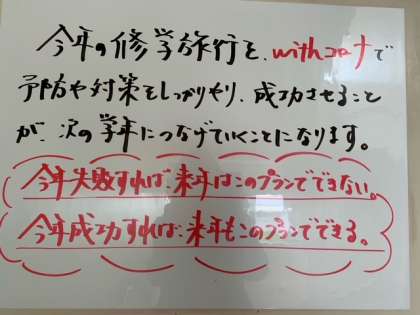 今年の修学旅行を、withコロナで
予防や対策をしっかりやり、成功させること
が、次の学年につなげていくことになります。
今年失敗すれば、来年はこのプランでできない。
今年成功すれば、来年もこのプランでできる。